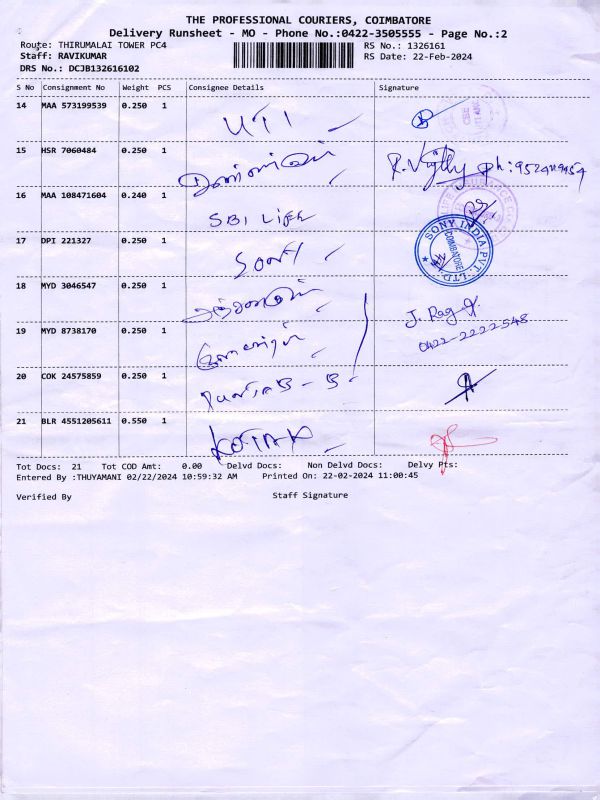 THE PROFESSIONAL COURIERS, COIMBATORE
Delivery Runsheet - MO - Phone No.:0422-3505555 - Page No.:2
Route: THIRUMALAI TOWER PC4 RS No.: 1326161
Staff: RAVIKUMAR RS Date: 22-Feb-2024
DRS No.: DCJB132616102
S No Consignment No Weight PCS Consignee Details Signature
14 MAA 573199539 0.250 1 UTI
15 HSR 7060484 0.250 1
16 MAA 108471604 0.240 1 SBI Life
17 DPI 221327 0.250 1 SONY SONY INDIA PVT. LTD. COIMBATORE
18 MYD 3046547 0.250 1
19 MYD 8738170 0.250 1 0422-2222548
20 COK 24575859 0.250 1
21 BLR 4551205611 0.550 1 KOTAK
Tot Docs: 21 Tot COD Amt: 0.00 Delvd Docs: Non Delvd Docs: Delvy Pts:
Entered By :THUYAMANI 02/22/2024 10:59:32 AM Printed On: 22-02-2024 11:00:45
Verified By Staff Signature